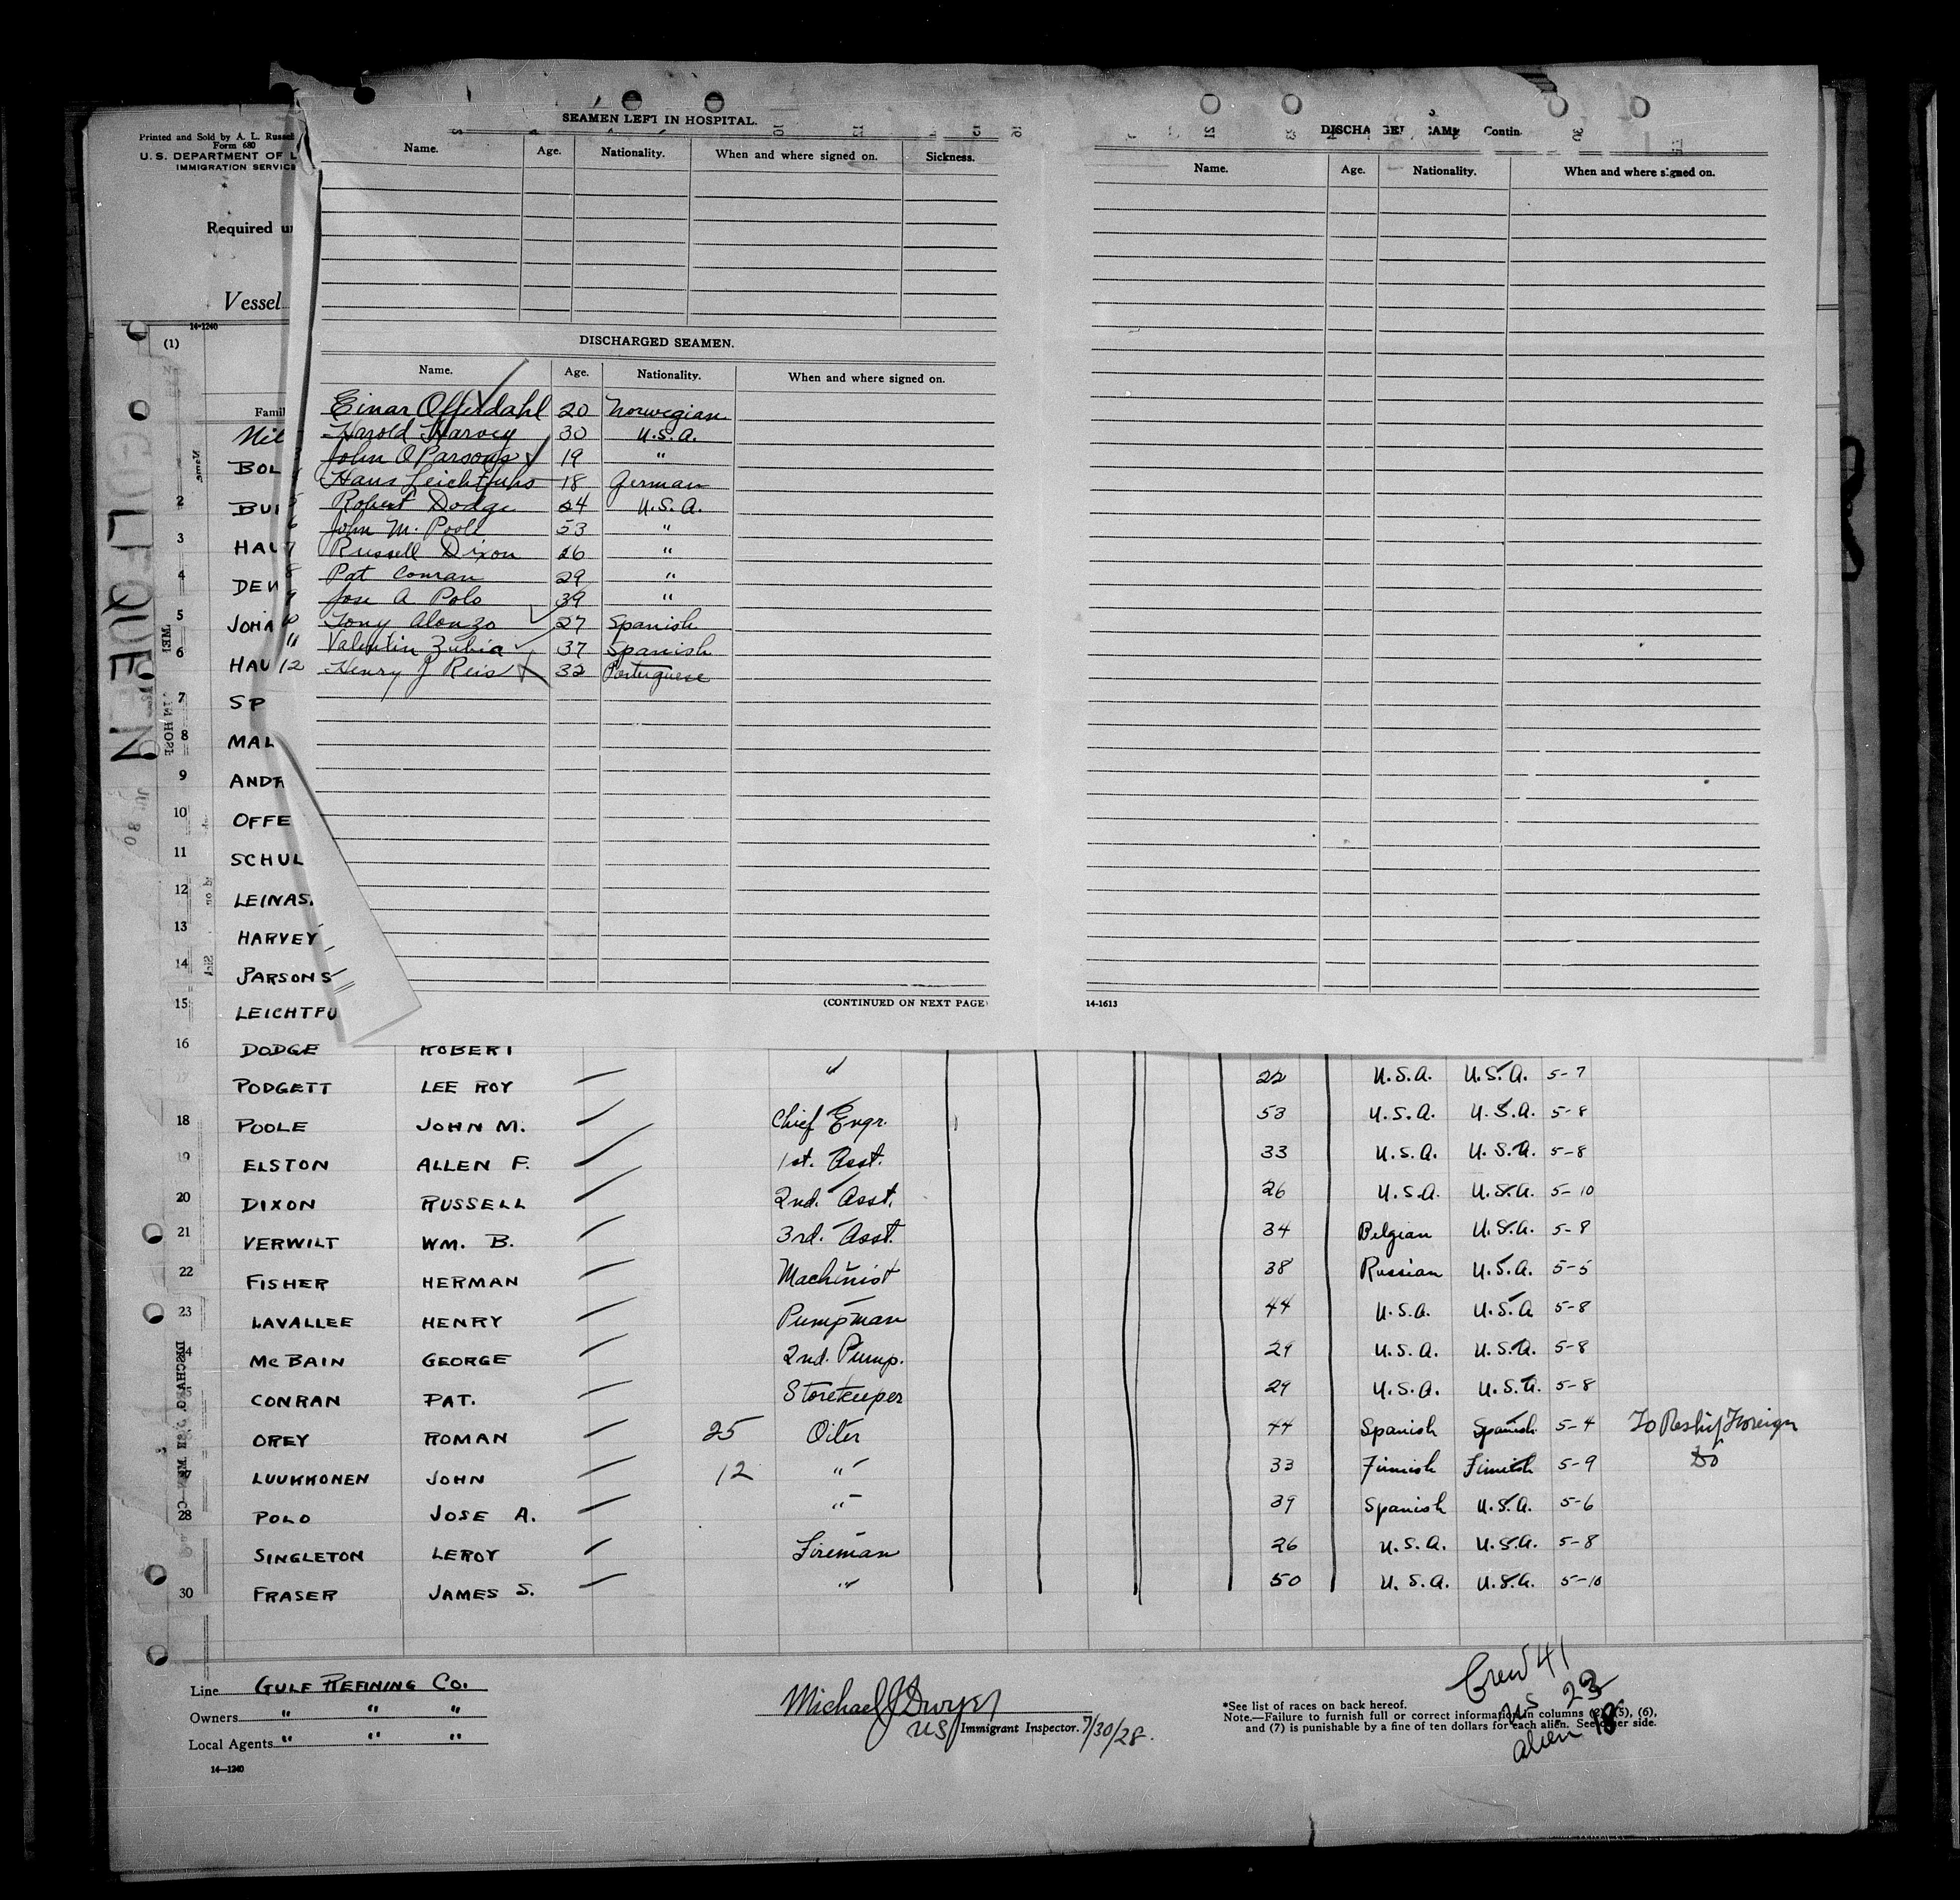 Printed and Sold by A. L. Russel
Form 680
U. S. DEPARTMENT OF L
IMMIGRATION SERVICE
Required un
Vessel
14-1240
(1)
Famil
GULFQUEEN
SEAMEN LEFT IN HOSPITAL.
Name. Age. Nationality. When and where signed on. Sickness.
DISCHARGED SEAMEN.
Name. Age. Nationality. When and where signed on.
Einar Offerdahl 20 Norwegian
Harold Harvey 30 U.S.A.
John O Parsons 19 "
Hans Leichtfuhs 18 German
5 Robert Dodge 24 U.S.A.
6 John M. Poole 53 "
7 Russell Dixon 26 "
8 Pat Conran 29 "
9 Jose A Polo 39 "
10 Tony Alonzo 27 Spanish
11 Valentin Zubia 37 Spanish
12 Henry J Reis 32 Portuguese
(CONTINUED ON NEXT PAGE)
Contin
Name. Age. Nationality. When and where signed on.
14-1613
Nil
BOL
2 BU
3 HAU
4 DEW
5 JOHA
6 HAU
7 SP
8 MAL
9 AND
10 OFFE
11 SCHUL
12 LEINAS
13 HARVEY
14 PARSONS
15 LEICHTFU
16 DODGE ROBERT
PODGETT LEE ROY " 22 U.S.A. U.S.A. 5-7
18 POOLE JOHN M. Chief Engr. 53 U.S.A. U.S.A. 5-8
19 ELSTON ALLEN F. 1st. Asst. 33 U.S.A. U.S.A. 5-8
20 DIXON RUSSELL 2nd. Asst. 26 U.S.A. U.S.A. 5-10
21 VERWILT WM. B. 3rd. Asst. 34 Belgian U.S.A. 5-8
22 FISHER HERMAN Machinist 38 Russian U.S.A. 5-5
23 LAVALLEE HENRY Pumpman 44 U.S.A. U.S.A 5-8
24 McBAIN GEORGE 2nd. Pump. 29 U.S.A. U.S.A. 5-8
CONRAN PAT. Storekeeper 29 U.S.A. U.S.A. 5-8
OREY ROMAN 25 Oiler 44 Spanish Spanish 5-4 To Reship Foreign
27 LUUKKONEN JOHN 12 " 33 Finnish Finnish 5-9 Do
28 POLO JOSE A. " 39 Spanish U.S.A. 5-6
SINGLETON LEROY Fireman 26 U.S.A. U.S.A. 5-8
30 FRASER JAMES S. " 50 U.S.A. U.S.A. 5-10
Line GULF REFINING CO.
Owners " " "
Local Agents " " "
14-1240
Michael J Dwyer
US Immigrant Inspector. 7/30/28.
Crew 41
US 23
alien 18
*See list of races on back hereof.
Note.—Failure to furnish full or correct information in columns (2), (5), (6),
and (7) is punishable by a fine of ten dollars for each alien. See other side.